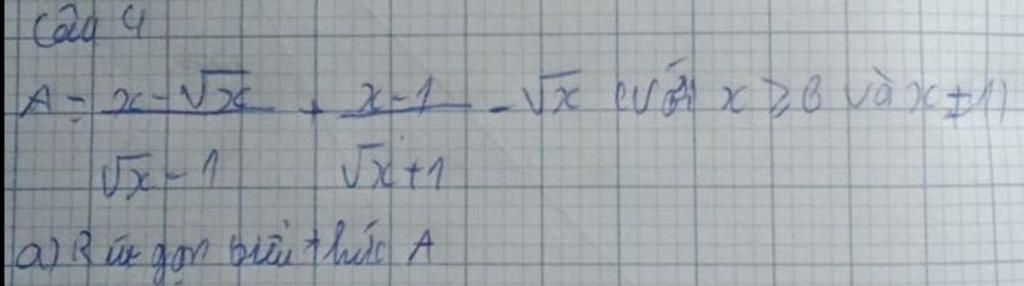 Câu 4
A = \frac{x-\sqrt{x}}{\sqrt{x}-1} + \frac{x-1}{\sqrt{x}+1} - \sqrt{x} (với x ≥ 0 và x ≠ 1)
a) Rút gọn biểu thức A